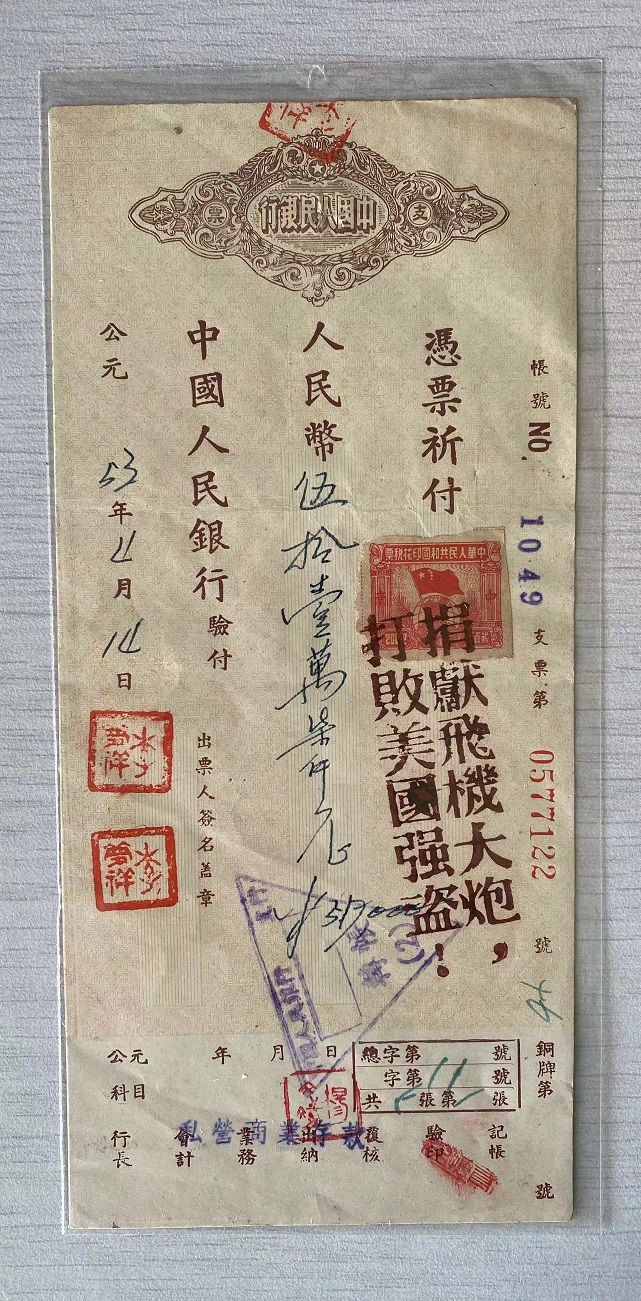 中國人民銀行
支票
帳號 NO. 1049 支票第 0577122 號
憑票祈付
中華人民共和國印花稅票
捐獻飛機大炮，
打敗美國强盜！
人民幣伍拾壹萬柒仟元
517000
中國人民銀行驗付
出票人簽名蓋章
公元53年11月14日
銅牌第 號
總字第 號
字第11號
共 張第 張
公元 年 月 日
科目
私營商業存款
記帳
驗印
覆核
出納
業務
會計
行長